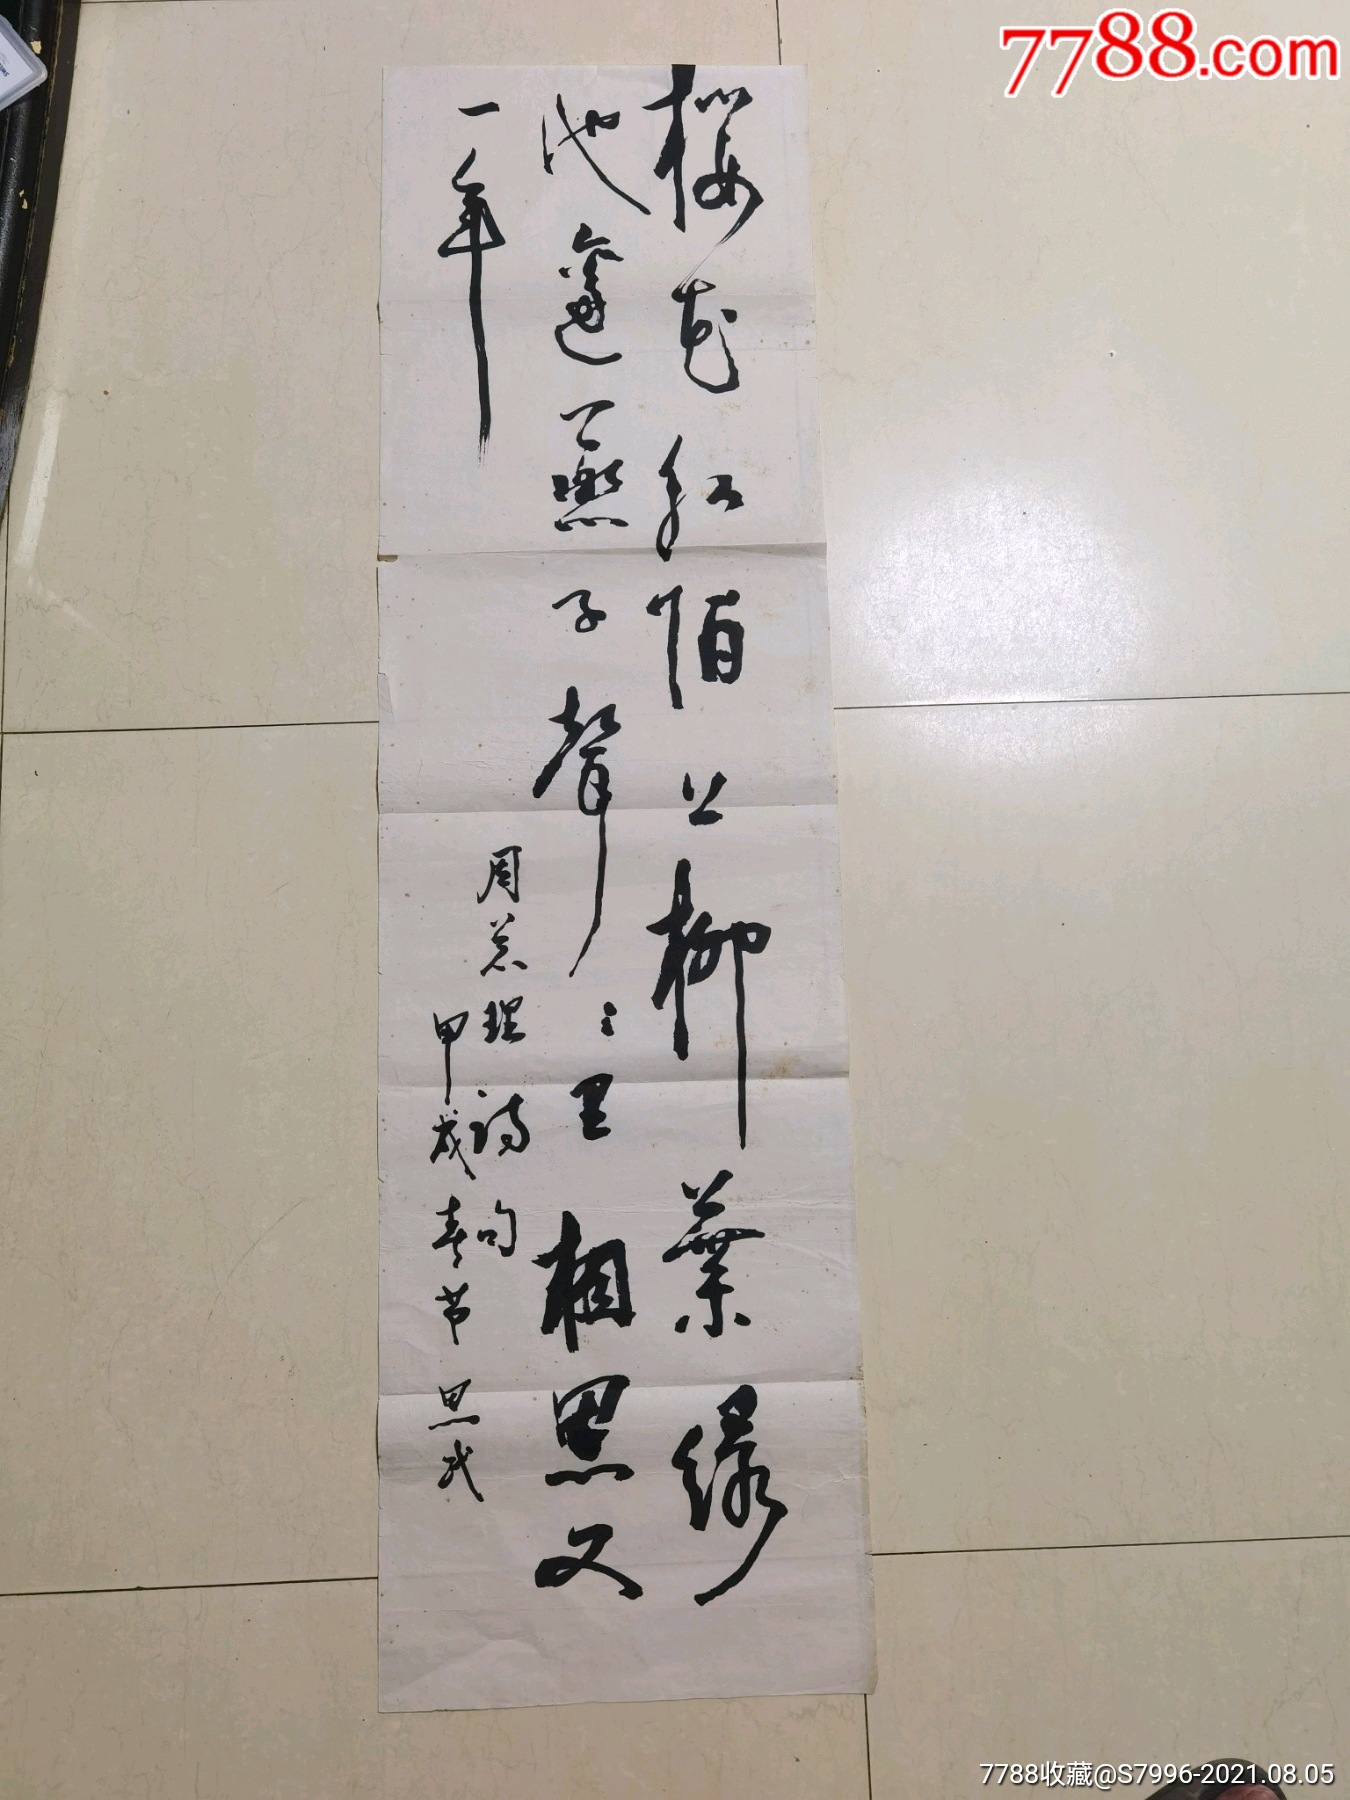 7788.com
樱花红陌上柳葉绿
池邊燕子聲〻里相思又
一年
周恩理诗句
甲戌春节 思武
7788收藏@S7996-2021.08.05